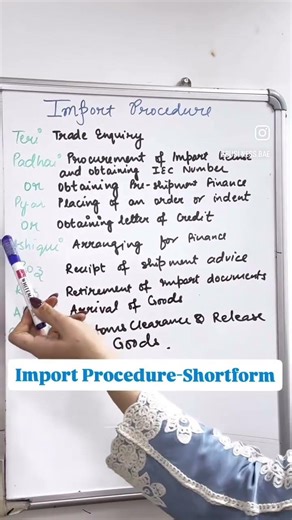 Import Procedure
Teri Trade Enquiry
Padhai Procurement of Import license
and obtaining IEC Number
or Obtaining Pre-shipment Finance
Pyar Placing of an order or indent
or Obtaining letter of Credit
Ashiqui Arranging for Finance
Receipt of shipment advice
Retirement of import documents
Arrival of Goods
Clearance & Release
Goods.
Import Procedure-Shortform